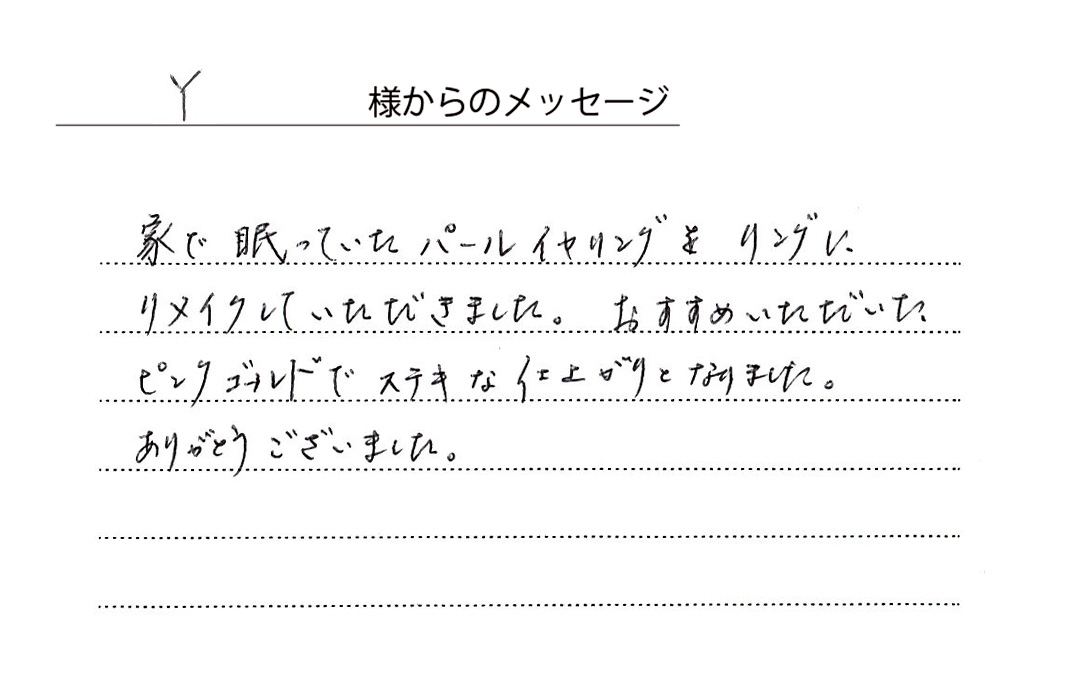 Y 様からのメッセージ
家で眠っていたパールイヤリングを リングに
リメイクしていただきました。 おすすめいただいた
ピンクゴールドでステキな仕上がりとなりました。
ありがとうございました。